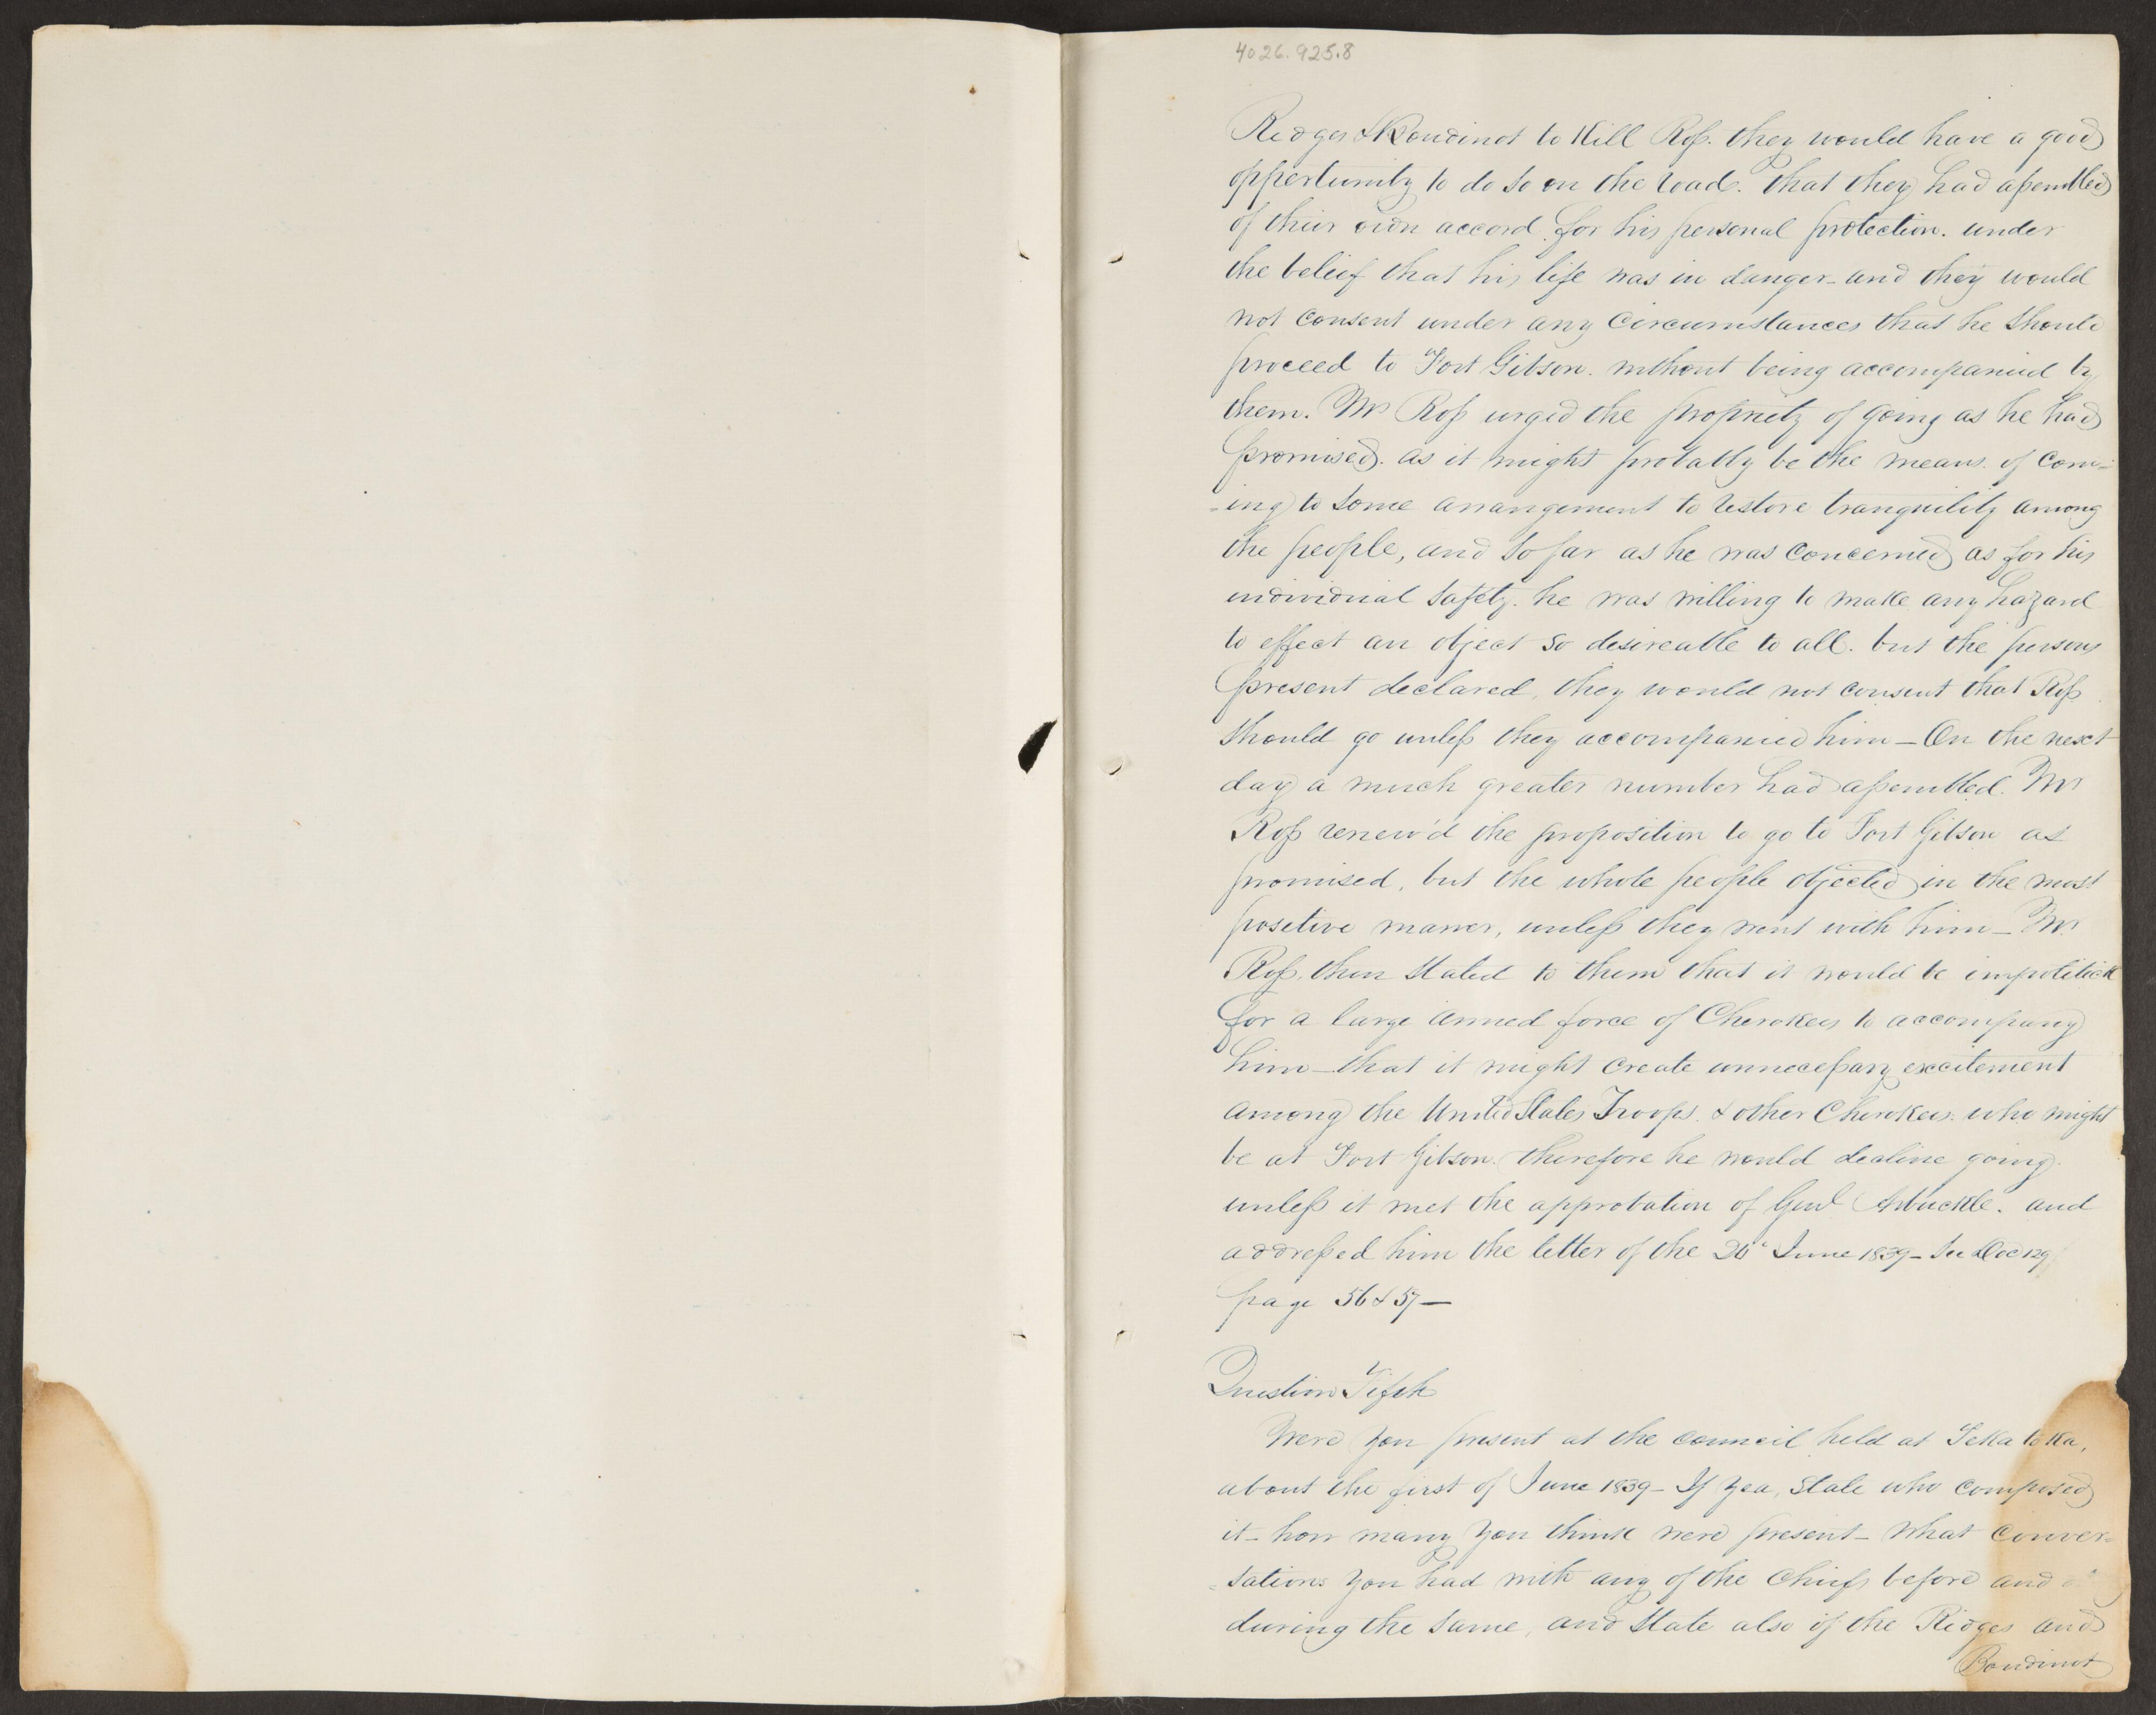 4026.925.8
Ridges & Boudinot to Kill Ross. they would have a good
oppertunity to do so on the road. that they had assembled
of their own accord for his personal protection. under
the belief that his life was in danger - and they would
not consent under any Circumstances that he should
proceed to Fort Gibson. without being accompanied by
them. Mr Ross urged the propriety of going as he had
promised. as it might probably be the means of com-
-ing to some arrangement to restore tranquility among
the people, and so far as he was concerned as for his
individual safety. he was willing to make any hazard
to effect an object so desireable to all. but the persons
present declared, they would not consent that Ross
should go unless they accompanied him — On the next
day a much greater number had assembled. Mr
Ross renew'd the proposition to go to Fort Gibson as
promised, but the whole people objected in the most
positive manner, unless they went with him — Mr
Ross. then stated to them that it would be impolitick
for a large armed force of Cherokees to accompany
him — that it might create unnecessary excitement
among the United States Troops. & other Cherokees. who might
be at Fort Gibson. therefore he would decline going.
unless it met the approbation of Genl Arbuckle. and
addressed him the letter of the June 1839 - See Doc 129
page 56 & 57 —
Question Fifth
Were you present at the council held at Takatoka,
about the first of June 1839 - If yea, state who composed
it - how many you think were present - what conver=
=sations you had with any of the Chiefs before and
during the same, and state also if the Ridges and
Boudinot